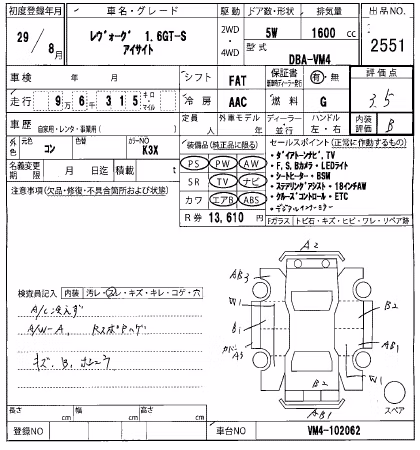 初度登録年月
車名・グレード
駆動
ドア数・形状
排気量
出品NO.
29/8月
レヴォーグ 1.6GT-S
アイサイト
2WD・4WD
5W
1600 cc
2551
型式
DBA-VM4
車検
年 月
シフト
FAT
保証書
有・無
評価点
3.5
走行
9万6千315
キロ・マイル
冷房
AAC
燃料
G
車歴
自家用・レンタ・事業用( )
定員
人
外車モデル
年
ディーラー・並行
ハンドル
左・右
内装評価
B
外色
元色
コン
色替
カラーNO
K3X
装備品(純正品に限る)
PS PW AW
SR TV ナビ
カワ エアB ABS
R券 13,610 円
セールスポイント(正常に作動するもの)
・ダイアトーンナビ,TV
・F,S,Bカメラ・LEDライト
・シートヒーター・BSM
・ステアリングアシスト・18インチAW
・クルーズコントロール・ETC
・デジタルインナーミラー
名義変更期限
月 日迄
積載
t
注意事項(欠品・修復・不具合箇所および状態)
Fガラス
トビ石・キズ・ヒビ・ワレ・リペア跡
検査員記入
内装
汚レ・スレ・キズ・キレ・コゲ・穴
A/W-A,
キズ,B,
A2
AB3
W1
B1
A3
B2
AB1
W1
B2
AB1
スペア
長さ cm
幅 cm
高さ cm
登録NO
車台NO
VM4-102062